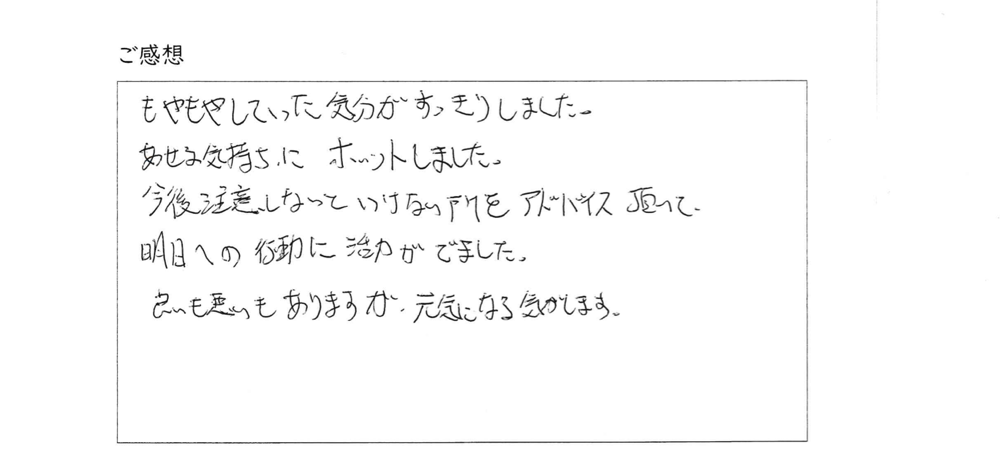 ご感想
もやもやしていった気分がすっきりしました。
あせる気持ちにホットしました。
今後注意しなっといけない所をアドバイス頂いて、
明日への行動に活力がでました。
良いも悪いもありますが、元気になる気がします。